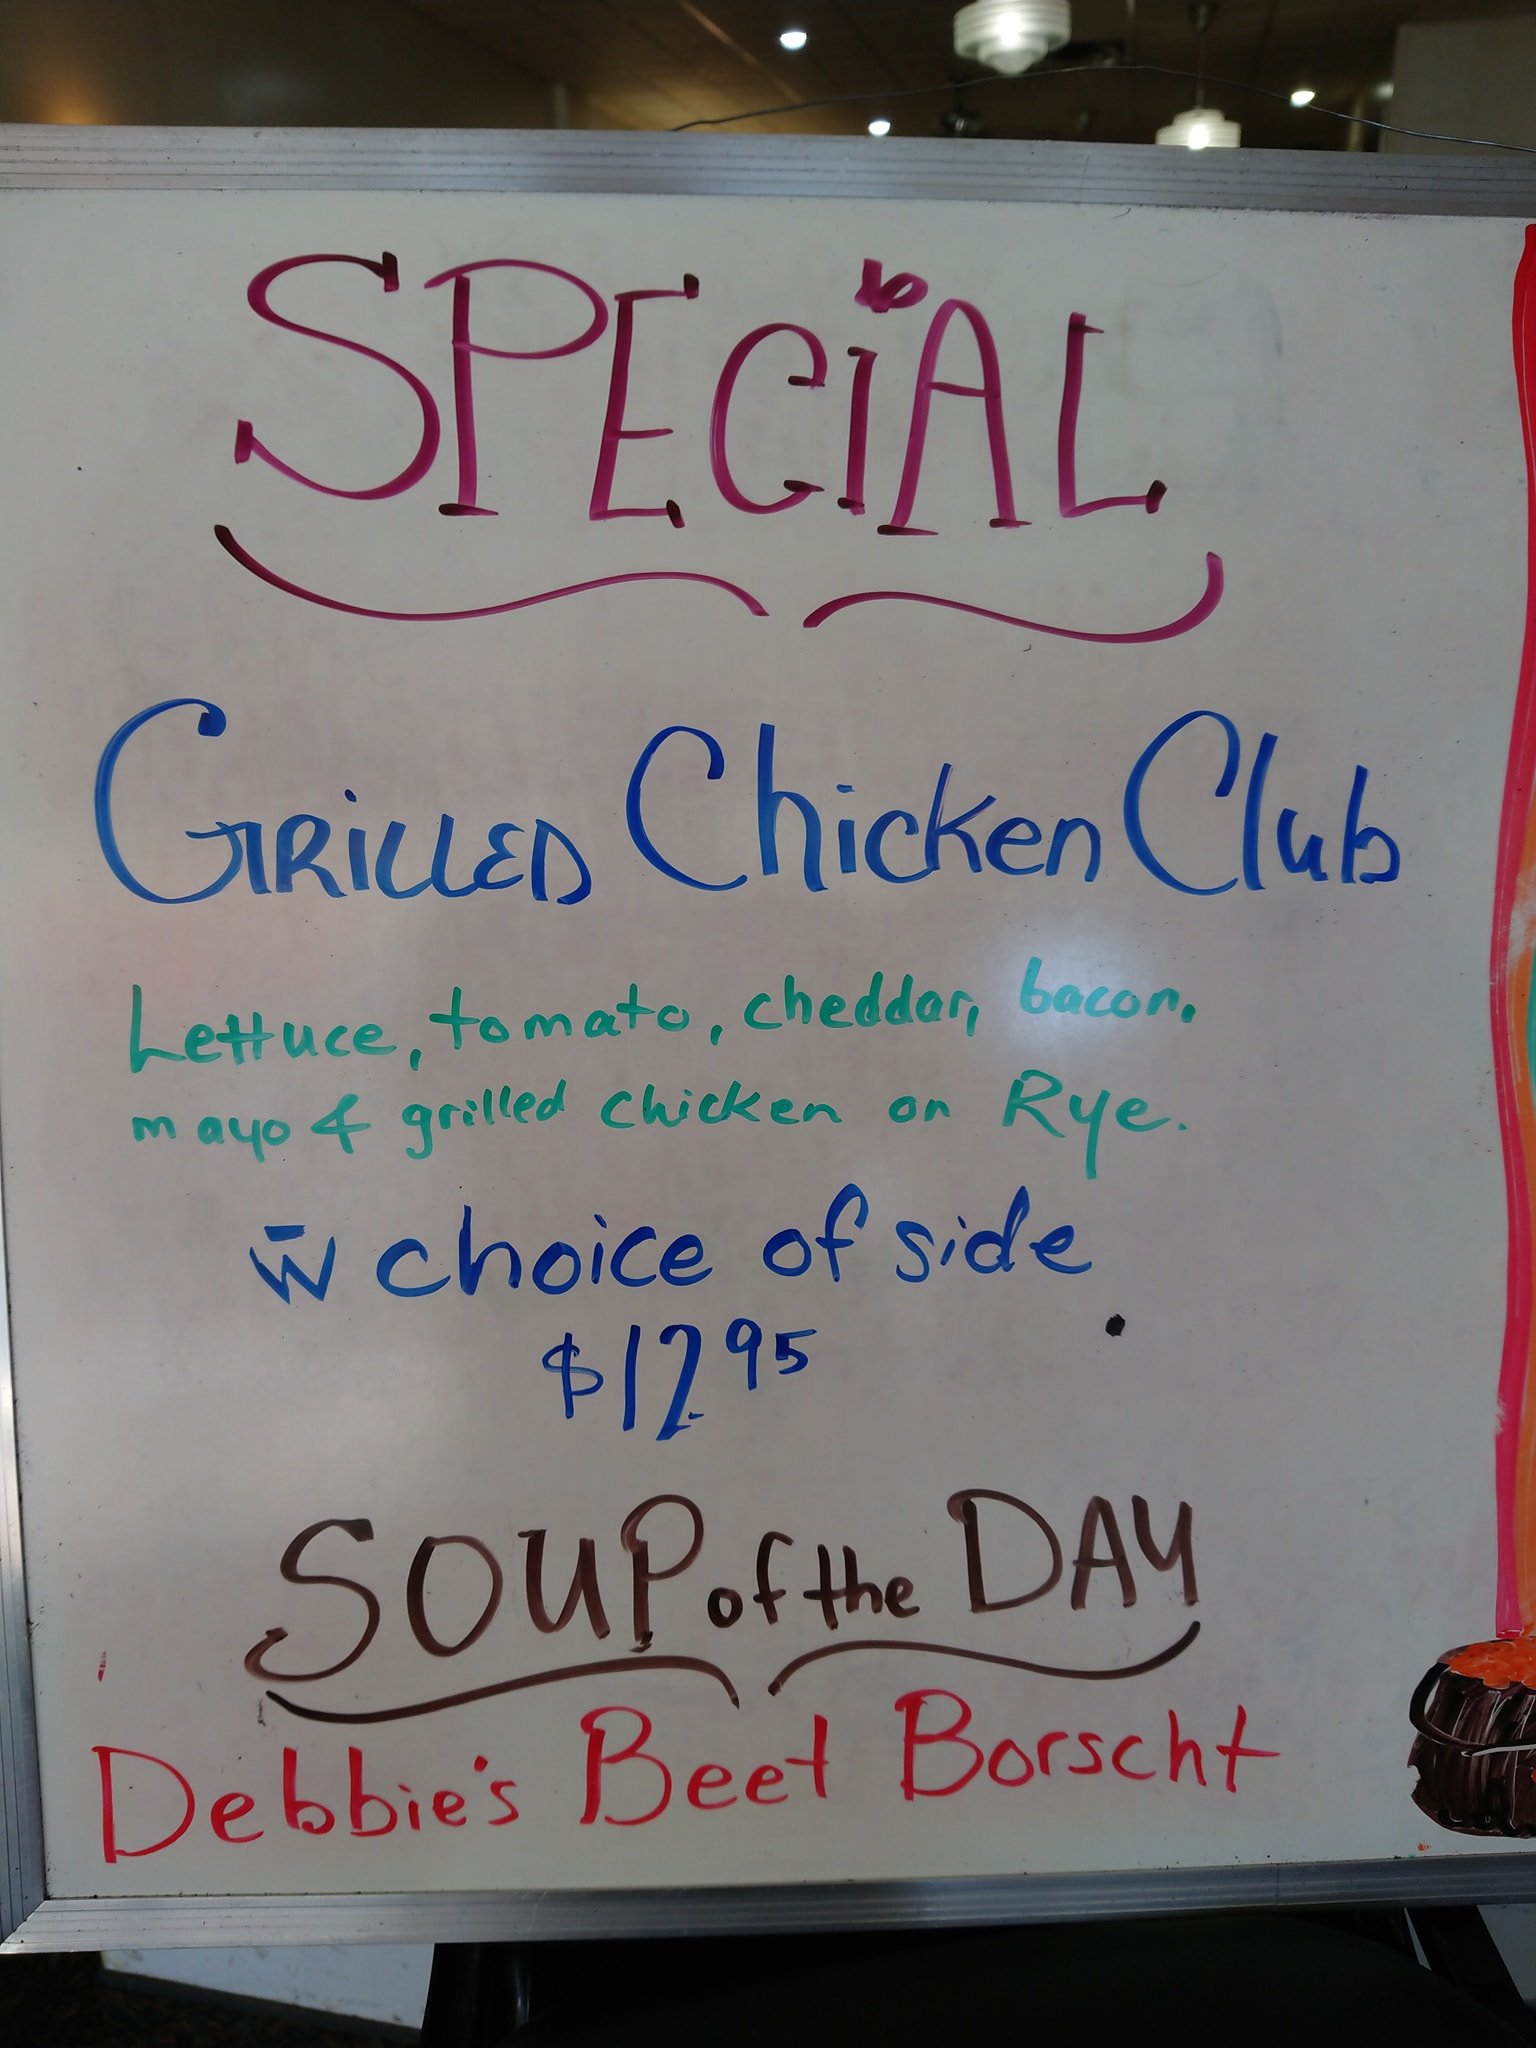 SPECiAL
GRiLLED Chicken Club
Lettuce, tomato, cheddar, bacon,
mayo & grilled chicken on Rye.
w̄ choice of side
$12.95
SOUP of the DAY
Debbie's Beet Borscht